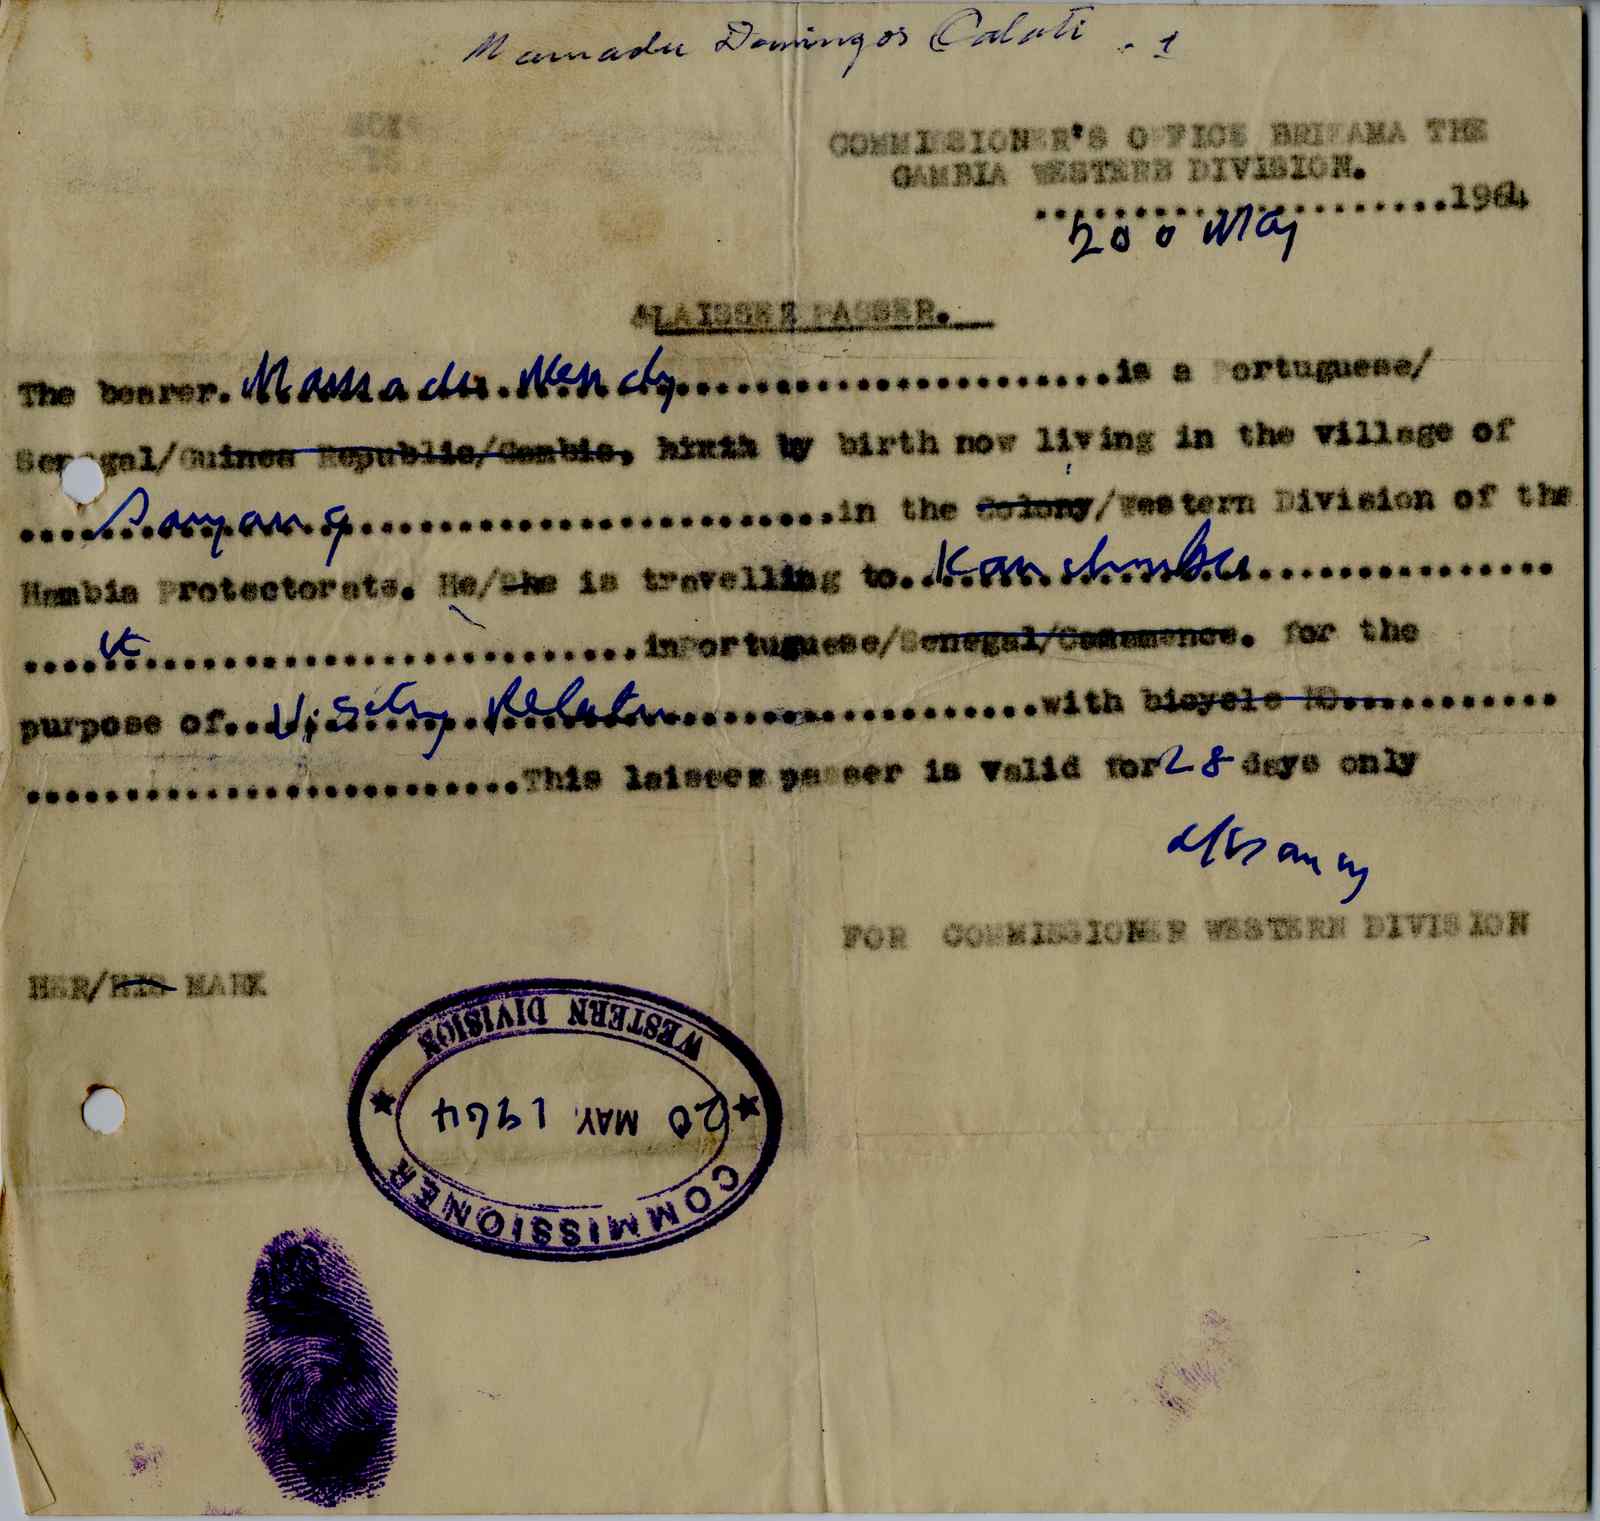 Mamadu Domingos Calati . 1
COMMISSIONER'S OFFICE BRIKAMA THE
GAMBIA WESTERN DIVISION.
......................1964
20 May
LAISSEZ PASSER.
The bearer. Mamadu Mendy..........................is a Portuguese/
Senegal/Guinea Republic/Gambia, birth by birth now living in the village of
....Sanyang..............................in the Colony/Western Division of the
Hambia Protectorate. He/She is travelling to..........................
..................................inPortuguese/Senegal/Casamence. for the
purpose of...Visiting Relation......................with bicycle NO...........
.........................This laissez passer is valid for 28 days only
FOR COMMISSIONER WESTERN DIVISION
HER/HIS MARK
WESTERN DIVISION
20 MAY 1964
COMMISSIONER